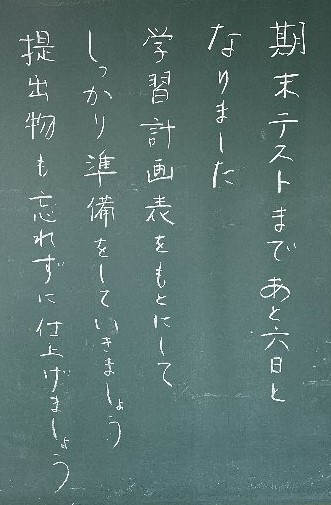 期末テストまであと六日と
なりました
学習計画表をもとにして
しっかり準備をしていきましょう
提出物も忘れずに仕上げましょう